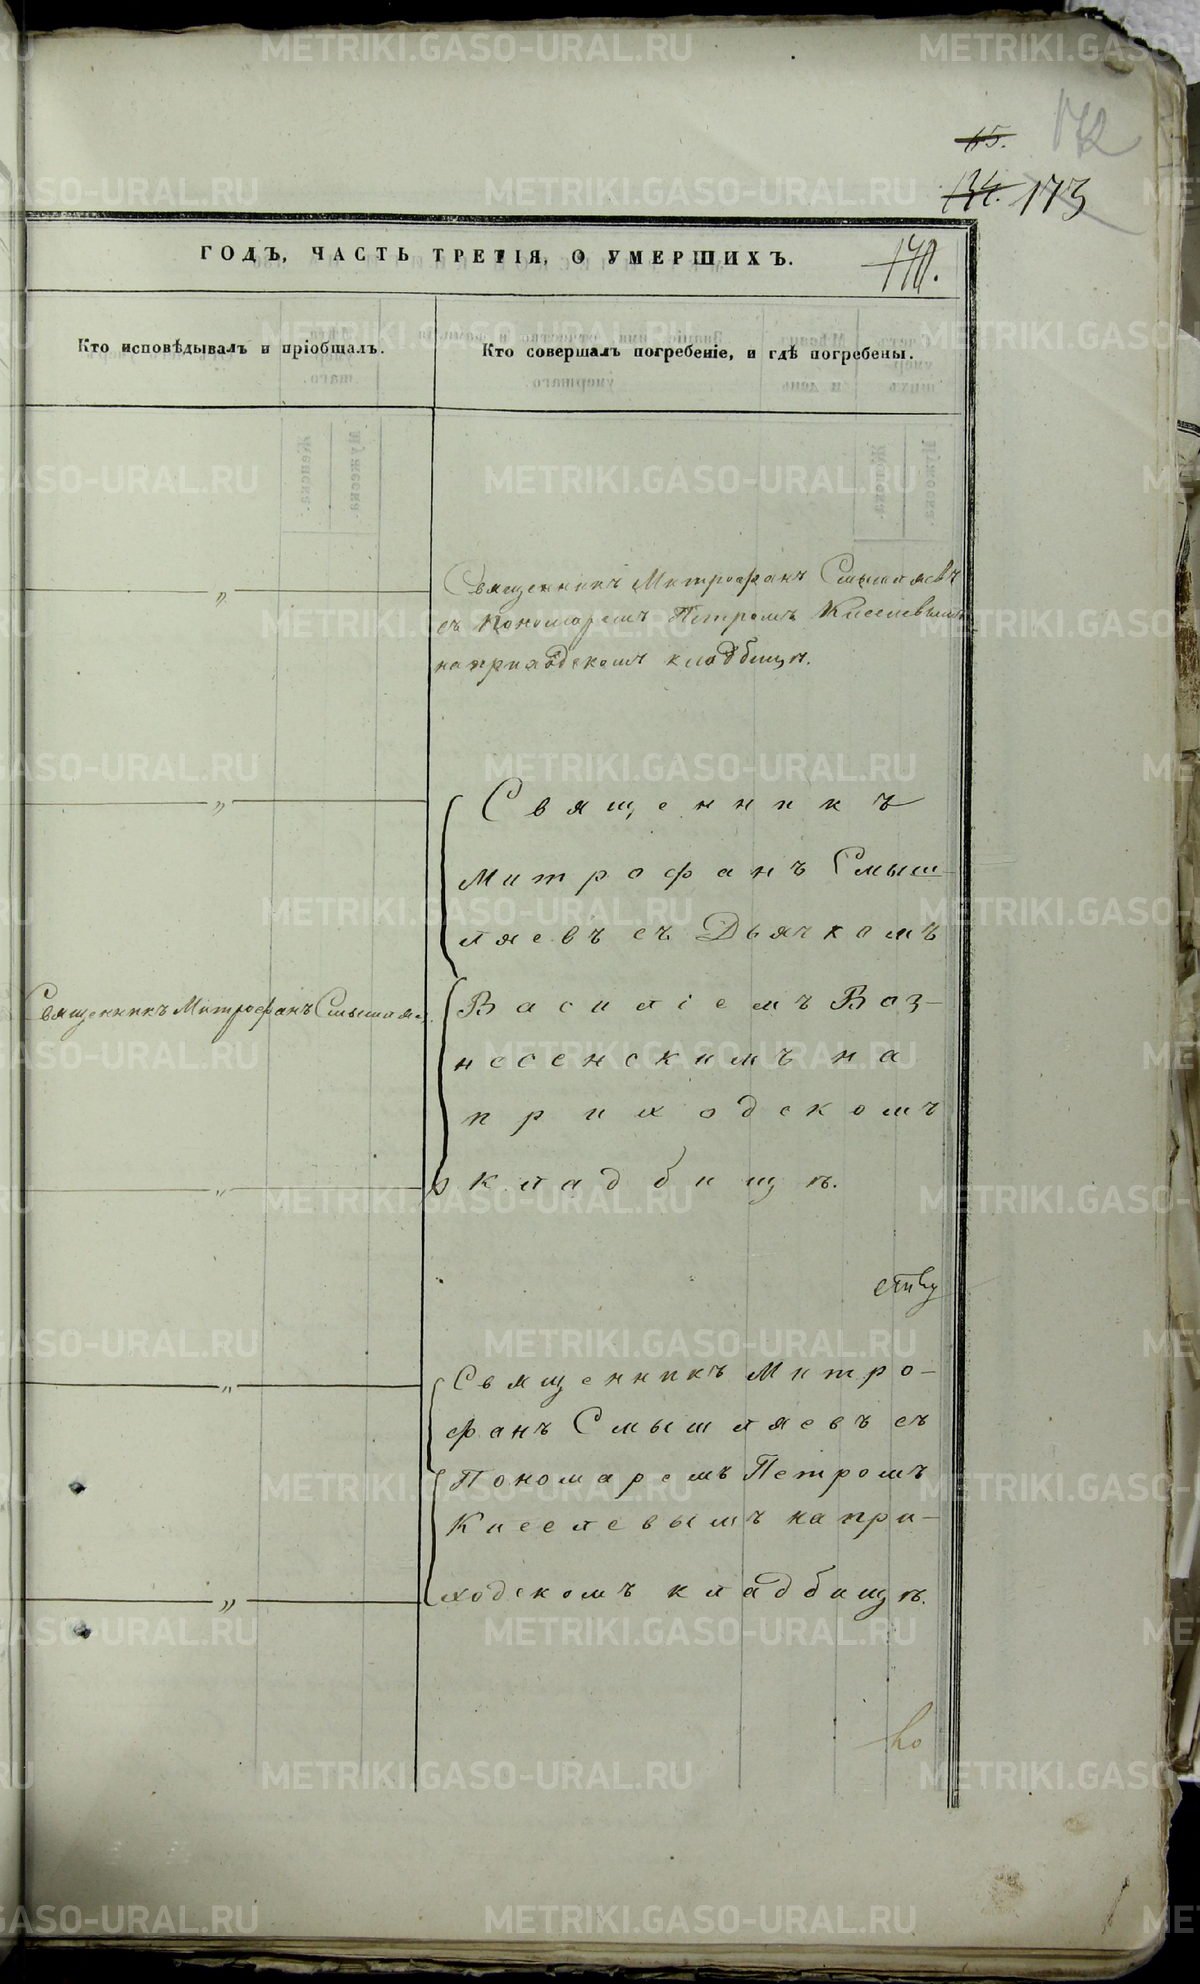 172
65.
134. 173
ГОДЪ, ЧАСТЬ ТРЕТІЯ, О УМЕРШИХЪ.
170.
Кто исповѣдывалъ и пріобщалъ.
Кто совершалъ погребеніе, и гдѣ погребены.
„
Священникъ Митрофанъ Смышляевъ
съ Пономаремъ Петромъ Киселевымъ
на приходскомъ кладбищѣ.
„
Священникъ
Митрофанъ Смыш-
ляевъ съ Дьячкомъ
Священникъ Митрофанъ Смышляев.
Василіемъ Воз-
несенскимъ на
приходскомъ
„
кладбищѣ.
„
Священникъ Митро-
фанъ Смышляевъ съ
Пономаремъ Петромъ
Киселевымъ на при-
„
ходскомъ кладбищѣ.
METRIKI.GASO-URAL.RU